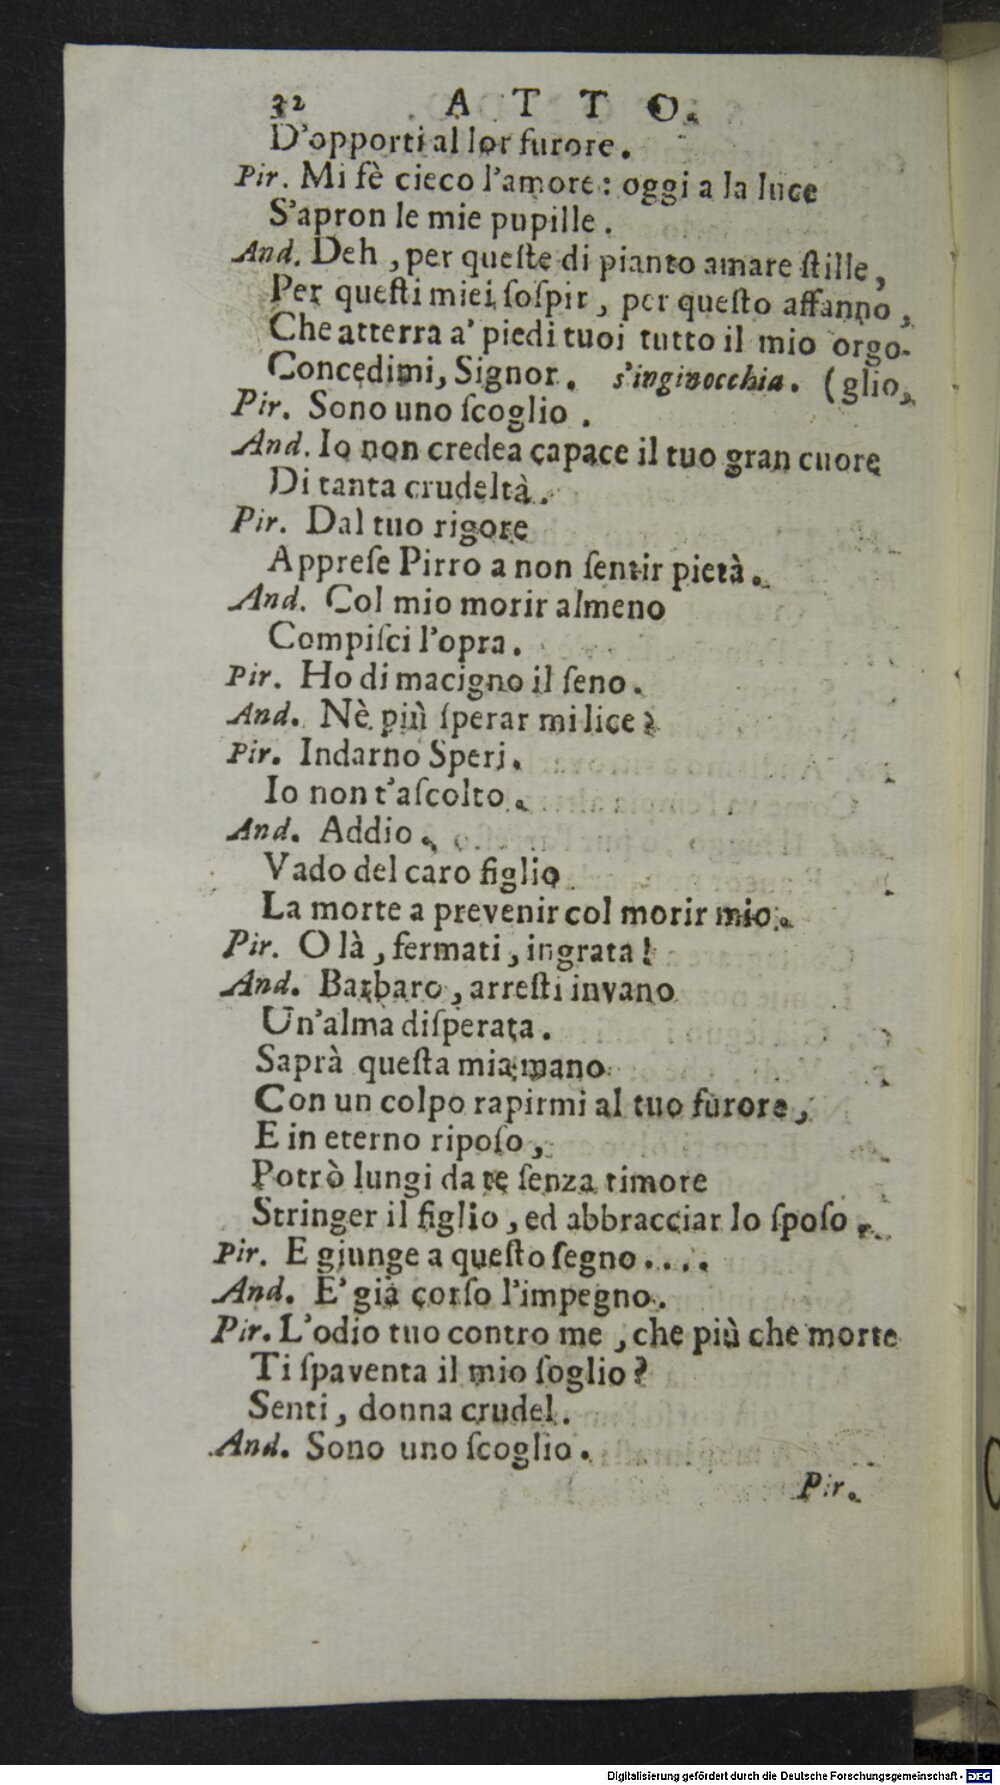 32 ATTO.
D'opporti al lor furore.
Pir. Mi fè cieco l'amore: oggi a la luce
S'apron le mie pupille.
And. Deh, per queſte di pianto amare ſtille,
Per queſti miei ſoſpir, per queſto affanno,
Che atterra a' piedi tuoi tutto il mio orgo-
Concedimi, Signor. s'inginocchia. (glio,
Pir. Sono uno ſcoglio.
And. Io non credea capace il tuo gran cuore
Di tanta crudeltà.
Pir. Dal tuo rigore
Appreſe Pirro a non ſentir pietà.
And. Col mio morir almeno
Compiſci l'opra.
Pir. Ho di macigno il ſeno.
And. Nè più ſperar mi lice?
Pir. Indarno Speri.
Io non t'aſcolto.
And. Addio.
Vado del caro figlio
La morte a prevenir col morir mio.
Pir. O là, fermati, ingrata!
And. Barbaro, arreſti invano
Un'alma diſperata.
Saprà queſta mia mano
Con un colpo rapirmi al tuo furore,
E in eterno ripoſo,
Potrò lungi da te ſenza timore
Stringer il figlio, ed abbracciar lo ſpoſo.
Pir. E giunge a queſto ſegno....
And. E' già corſo l'impegno.
Pir. L'odio tuo contro me, che più che morte
Ti ſpaventa il mio ſoglio?
Senti, donna crudel.
And. Sono uno ſcoglio.
Pir.
Digitalisierung gefördert durch die Deutsche Forschungsgemeinschaft - DFG